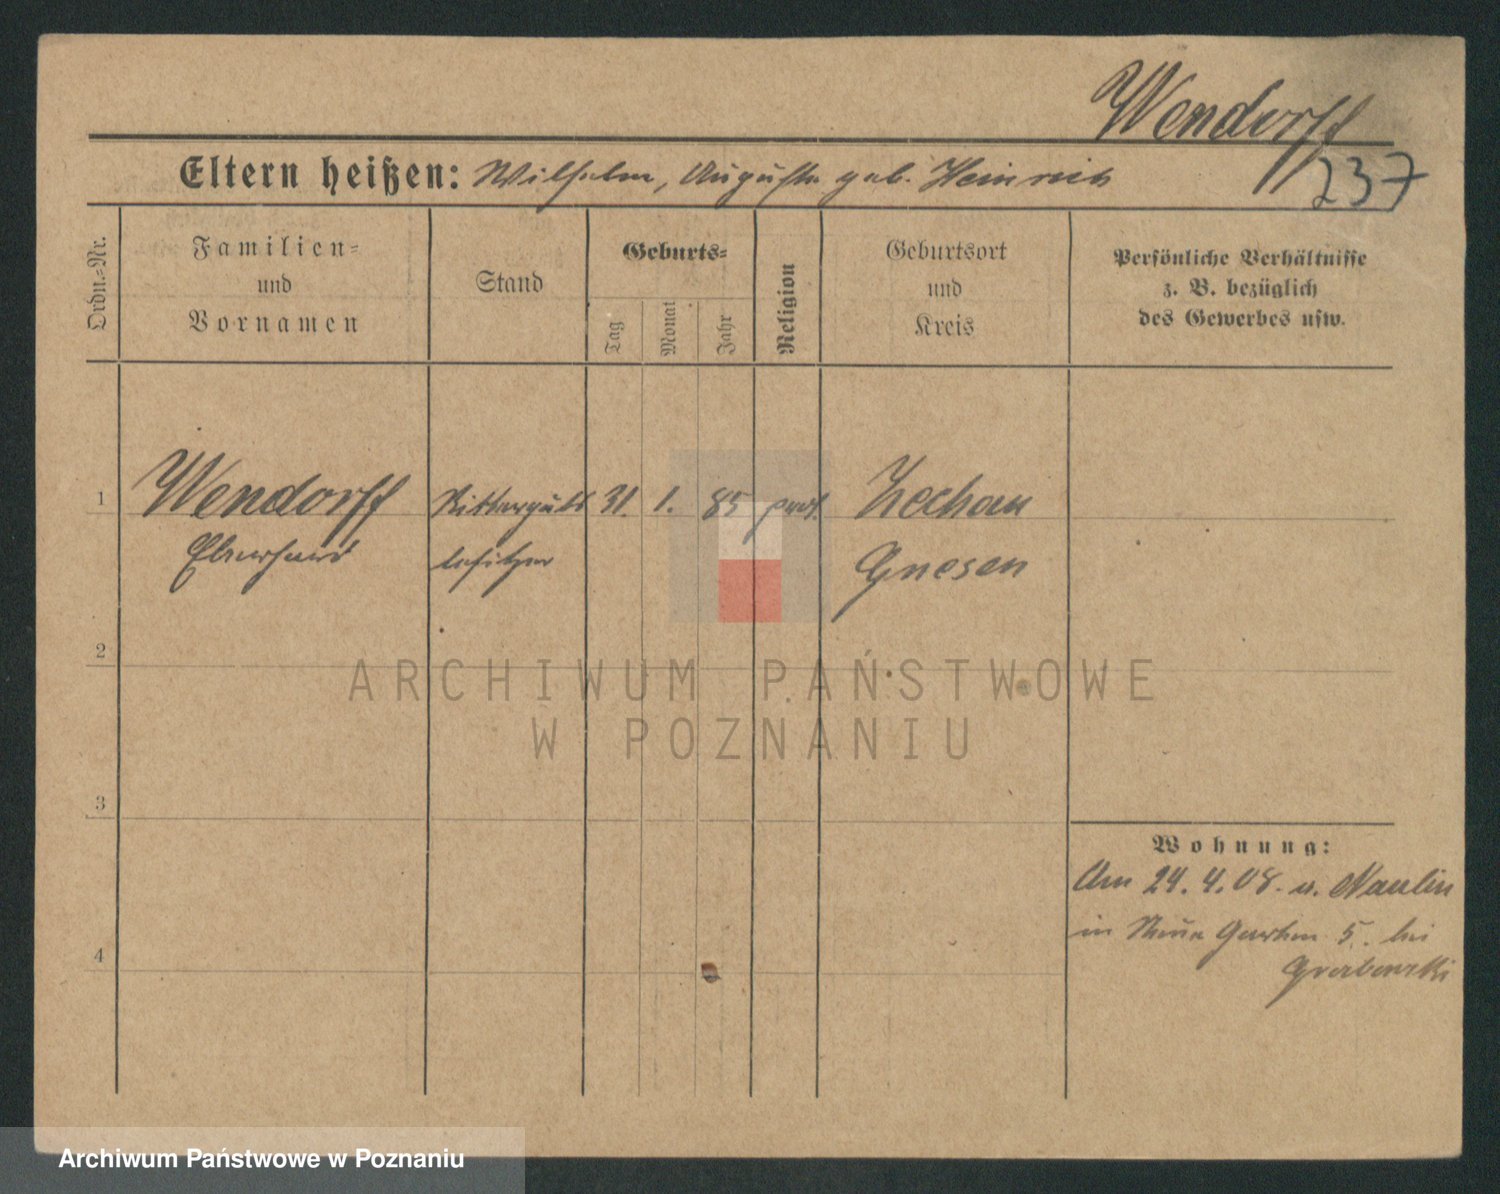 Wendorff
237
Eltern heißen: Wilhelm, Auguste geb. Heinrich
Ordn.-Nr.
Familien-
und
Vornamen
Stand
Geburts-
Tag
Monat
Jahr
Religion
Geburtsort
und
Kreis
Persönliche Verhältnisse
z. B. bezüglich
des Gewerbes usw.
1 Wendorff Ritterguts 31. 1. 85 prot. Zechau
Eberhard besitzer Gnesen
2
ARCHIWUM PAŃSTWOWE
W POZNANIU
3
Wohnung:
Am 24. 4. 08. v. Naulin
in Neue Garten 5. bei
Grabowski
4
Archiwum Państwowe w Poznaniu